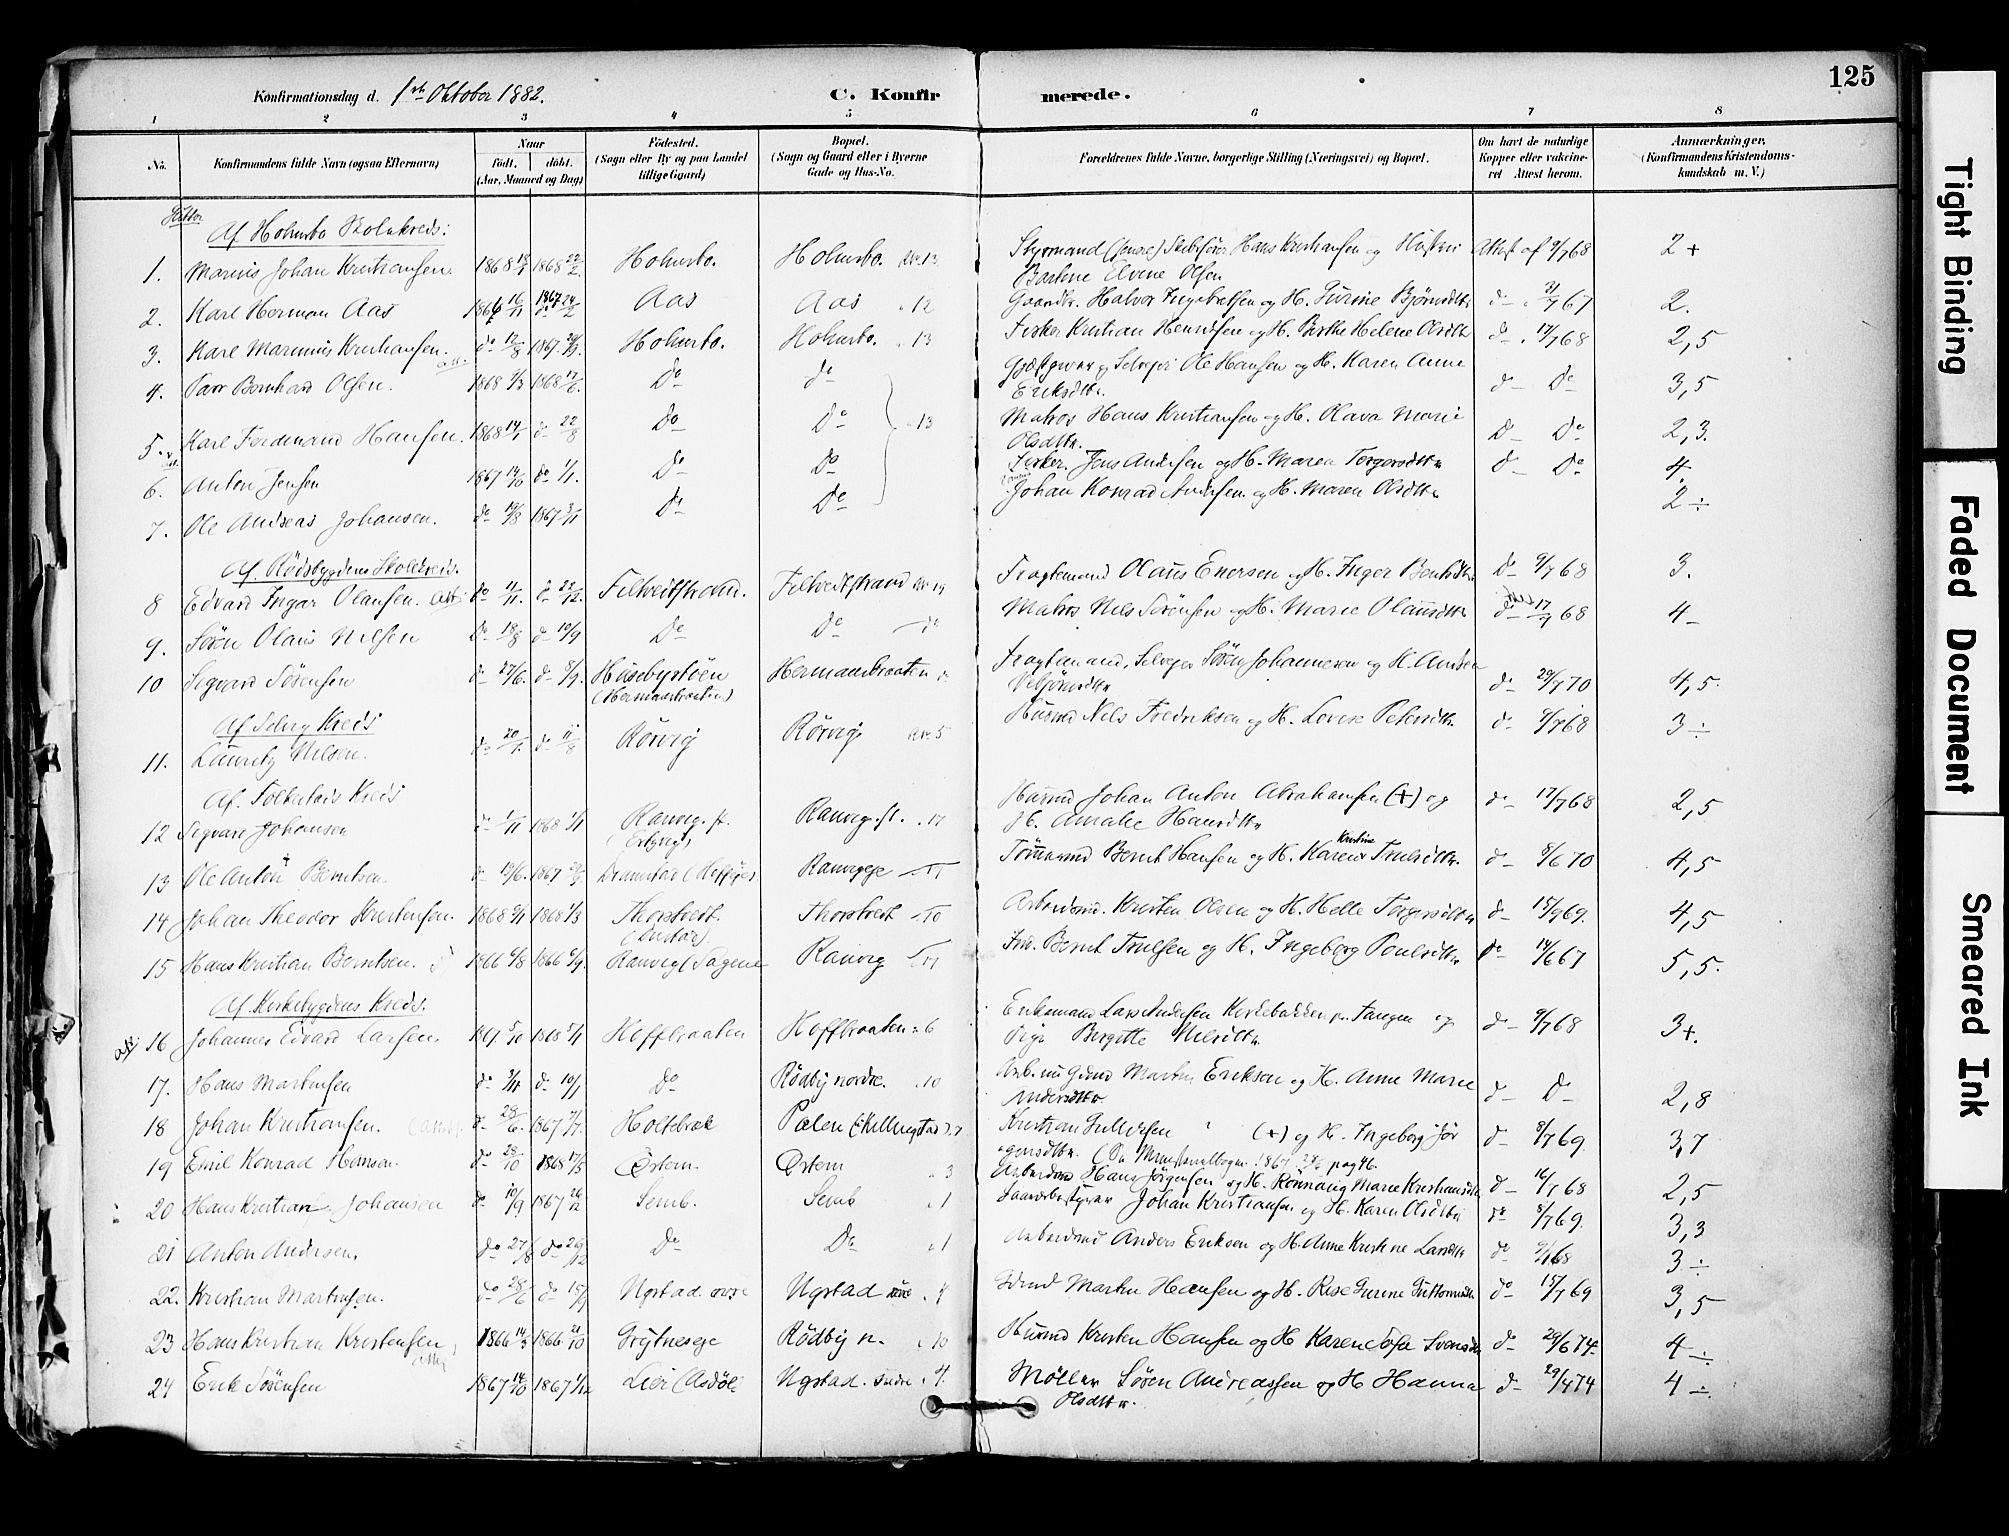 125
Konfirmationsdag d. 1ste Oktober 1882.
C. Konfir merede.
1 2 3 4 5 6 7 8
No. Konfirmandens fulde Navn (ogsaa Efternavn) Naar født, døbt. (Aar, Maaned og Dag) Fødested. (Sogn eller By og paa Landet tillige Gaard) Bopæl. (Sogn og Gaard eller i Byerne Gade og Hus-No. Forældrenes fulde Navne, borgerlige Stilling (Næringsvei) og Bopæl. Om havt de naturlige Kopper eller vaccineret Attest herom. Anmærkninger. (Konfirmandens Kristendomskundskab m. V.)
Af Holmsbo Skolekreds:
1. Marius Johan Kristiansen. 1868 1868 22/2. Holmsbo. Holmsbo. No. 13 Styrmand Hans Kristiansen og Hustru Attest af 9/7 68 2+
Bartine Elvine Olsen
2. Karl Herman Aas 16/11 1867 24/2 Aas Aas " 12 Gaardbr. Halvor Ingebretsen og H. Turine Bjørnsdtr. d- 31/7 67 2.
3. Karl Marinius Kristiansen. do 12/8 1867. Holmsbo. Holmsbo. " 13 Fisker Kristian Henriksen og H. Berthe Helene Olsdtr d- 17/7 68 2,5
4. Bernhard Olsen. 1868 1868 Do do Ole Hansen og H. Karen Anne d- Do 3,5
Eriksdtr.
5. Karl Ferdinand Hansen. 1868 14/1 d- 22/8 Do Do " 13 Matros Hans Kristiansen og H. Olava Marie D- Do 2,3.
Olsdtr.
6. Anton Jensen 1867 14/10 do 1/1. Do Do Fisker. Jens Andersen og H. Maren Torgersdtr d- Do 4.
7. Ole Andreas Johansen. do 19/8 1867 3/11 Do Do Johan Konrad Andersen og H. Maren Olsdtr 2÷
Af. Rødsbygdens Skolekreds.
8 Edvard Ingar Olausen. Att. do 11/11. d- 22/12. Filtvedtstrand. Filtvedtstrand No 19 Fragtemand Olaus Enersen og H. Inger Berntsdtr. D- 9/7 68 3.
9. Søren Olaus Nilsen Do 18/8 d- 10/9 Do Do do Matros Nils Sørensen og H. Marie Olausdtr d- 17/7 68 4-
10 Sigvard Sørensen d- 27/6. d- 8/9. Husebystøen Hermansbraaten Fragtemand, Selveier Søren Johannesen og H. Andrea d- 29/7 70 4,5.
(Hermansbraaten)
Af Selvig Kreds
11. Lauritz Nilsen. do 20/1. d- 11/8 Rørvig Rørvig No. 5 Husmd Nils Fredriksen og H. Lovise Petersdtr. d- 9/7 68 3÷
Af. Tofte Kreds
12 Sigvard Johansen d- 1/11 1868 1/1 Ranvig. Ranvig. . 17 Husmd Johan Anton Abrahamsen (+) og d- 17/7 68 2,5
H. Amalie Hansdtr
13 Ole Anton Berntsen d- 19/6. 1867 Dramstad Ranvigeje 17 Tømmermd Bernt Hansen og H. Karen Kristine Trulsdtr. d- 8/6 70 4,5
14 Johan Theodor Kristensen. 1868 1868 1/3 Thorstvedt. Thorstvedt 10 Arbeidsmd. Kristen Olsen og H. Helle Torgersdtr d- 15/9 69. 4,5
15 Hans Kristian Berntsen. 1866 6/8 1866 Ranvig (Sagene Ranvig 17 Bernt Trulsen og H. Ingeborg Poulsdtr do 14/6 67 5,5.
Af. Kirkebygdens Kreds.
16 Johannes Edvard Larsen. 1867. 5/10 1868 5/1 Hoffbraaten Hoffbraaten " 6 Enkemand Lars Andersen Kirkebakken pr. Tangen og d- 9/7 68 3+.
Pige Birgitte Nilsdtr
17. Hans Martinsen do 3/11 d- 10/1 Do Rødby nordre. . 10 Martin Eriksen og H. Anne Marie d- D- 2,8
Andersdtr.
18 Johan Kristiansen. d- 28/6. 1867 7/7. Holtebræk Pælen Kristian Gulliksen (+) og H. Ingeborg Jør d- 8/7 69. 3,7
gensdtr. (Se Ministerialbogen 1867 pag 46.
19 Emil Konrad Hansen. do 28/10 1868 17/3 Østern. Østern . 3 Arbeidsmd Hans Jørgensen og H. Rønnaug Marie Kristiansdtr d- 16/7 68 2,5
20 Hans Kristian Johansen do 10/9 1867 26/12 Semb. Semb . 1 Gaardbestyrer Johan Kristiansen og H. Karen Olsdtr do 8/7 69. 3,3
21 Anton Andersen. do 27/8 do 26/12 Do Do . 1 Arbeidsmd Anders Eriksen og H. Anne Kristine Larsdtr do 9/7 68 3÷
22. Kristian Martinsen. do 28/6 do 15/9 Ugstad øvre Ugstad øvre . 4 Martin Hansen og H. do 15/7 69 3,5
23 Hans Kristian Kristensen 1866 14/3 1866 21/10 Grytneseje Rødby n. . 10 Husmd Kristen Hansen og H Karen Sofie Svensdtr do 29/6 74. 4÷
24 Erik Sørensen 1867 14/10 1867 1/12 Lier (Asdøl Ugstad. søndre . 4. Møller Søren Andreassen og H Hanna d- 29/4 74 4÷
Olsdtr.
Tight Binding
Faded Document
Smeared Ink